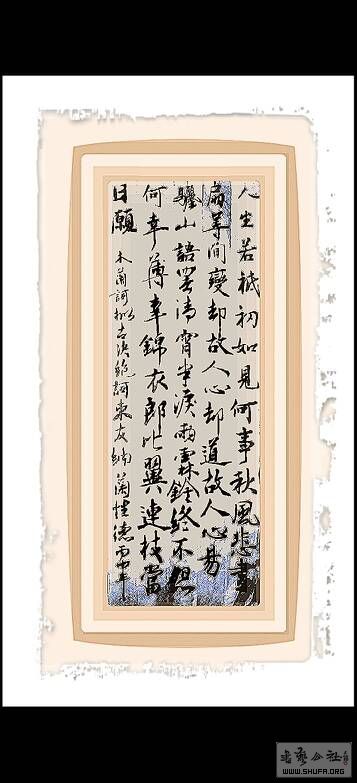 人生若祇初如見何事秋風悲畫
扇等間變却故人心却道故人心易
驪山語罷清宵半淚雨霖鈴終不怨
何幸薄幸錦衣郎比翼連枝當
日願
木蘭詞擬古決絕詞柬友納蘭性德丙申年
書藝公社
WWW.SHUFA.ORG